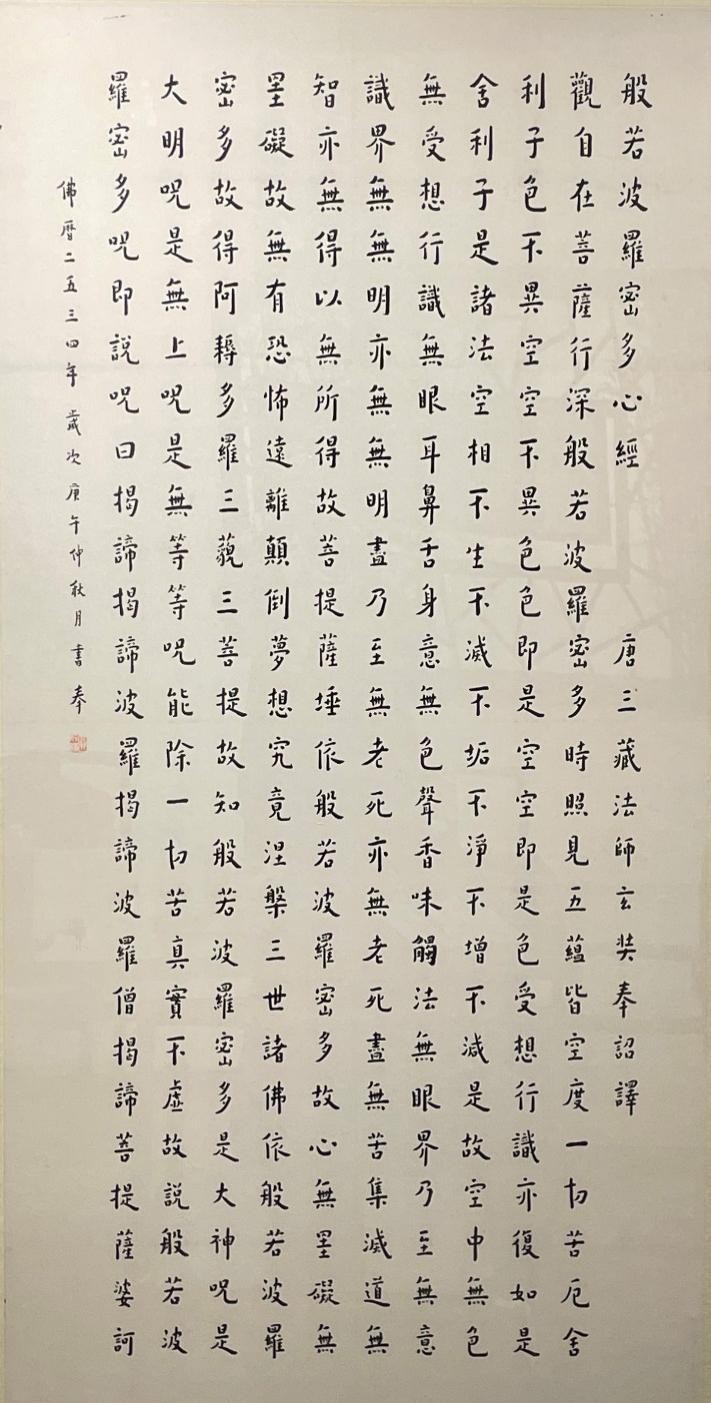 般若波羅密多心經 唐三藏法師玄奘奉詔譯
觀自在菩薩行深般若波羅密多時照見五蘊皆空度一切苦厄舍
利子色不異空空不異色色即是空空即是色受想行識亦復如是
舍利子是諸法空相不生不滅不垢不淨不增不減是故空中無色
無受想行識無眼耳鼻舌身意無色聲香味觸法無眼界乃至無意
識界無無明亦無無明盡乃至無老死亦無老死盡無苦集滅道無
智亦無得以無所得故菩提薩埵依般若波羅密多故心無罣礙無
罣礙故無有恐怖遠離顛倒夢想究竟涅槃三世諸佛依般若波羅
密多故得阿耨多羅三藐三菩提故知般若波羅密多是大神呪是
大明呪是無上呪是無等等呪能除一切苦真實不虛故說般若波
羅密多呪即說呪曰揭諦揭諦波羅揭諦波羅僧揭諦菩提薩婆訶
佛曆二五三四年歲次庚午仲秋月書奉